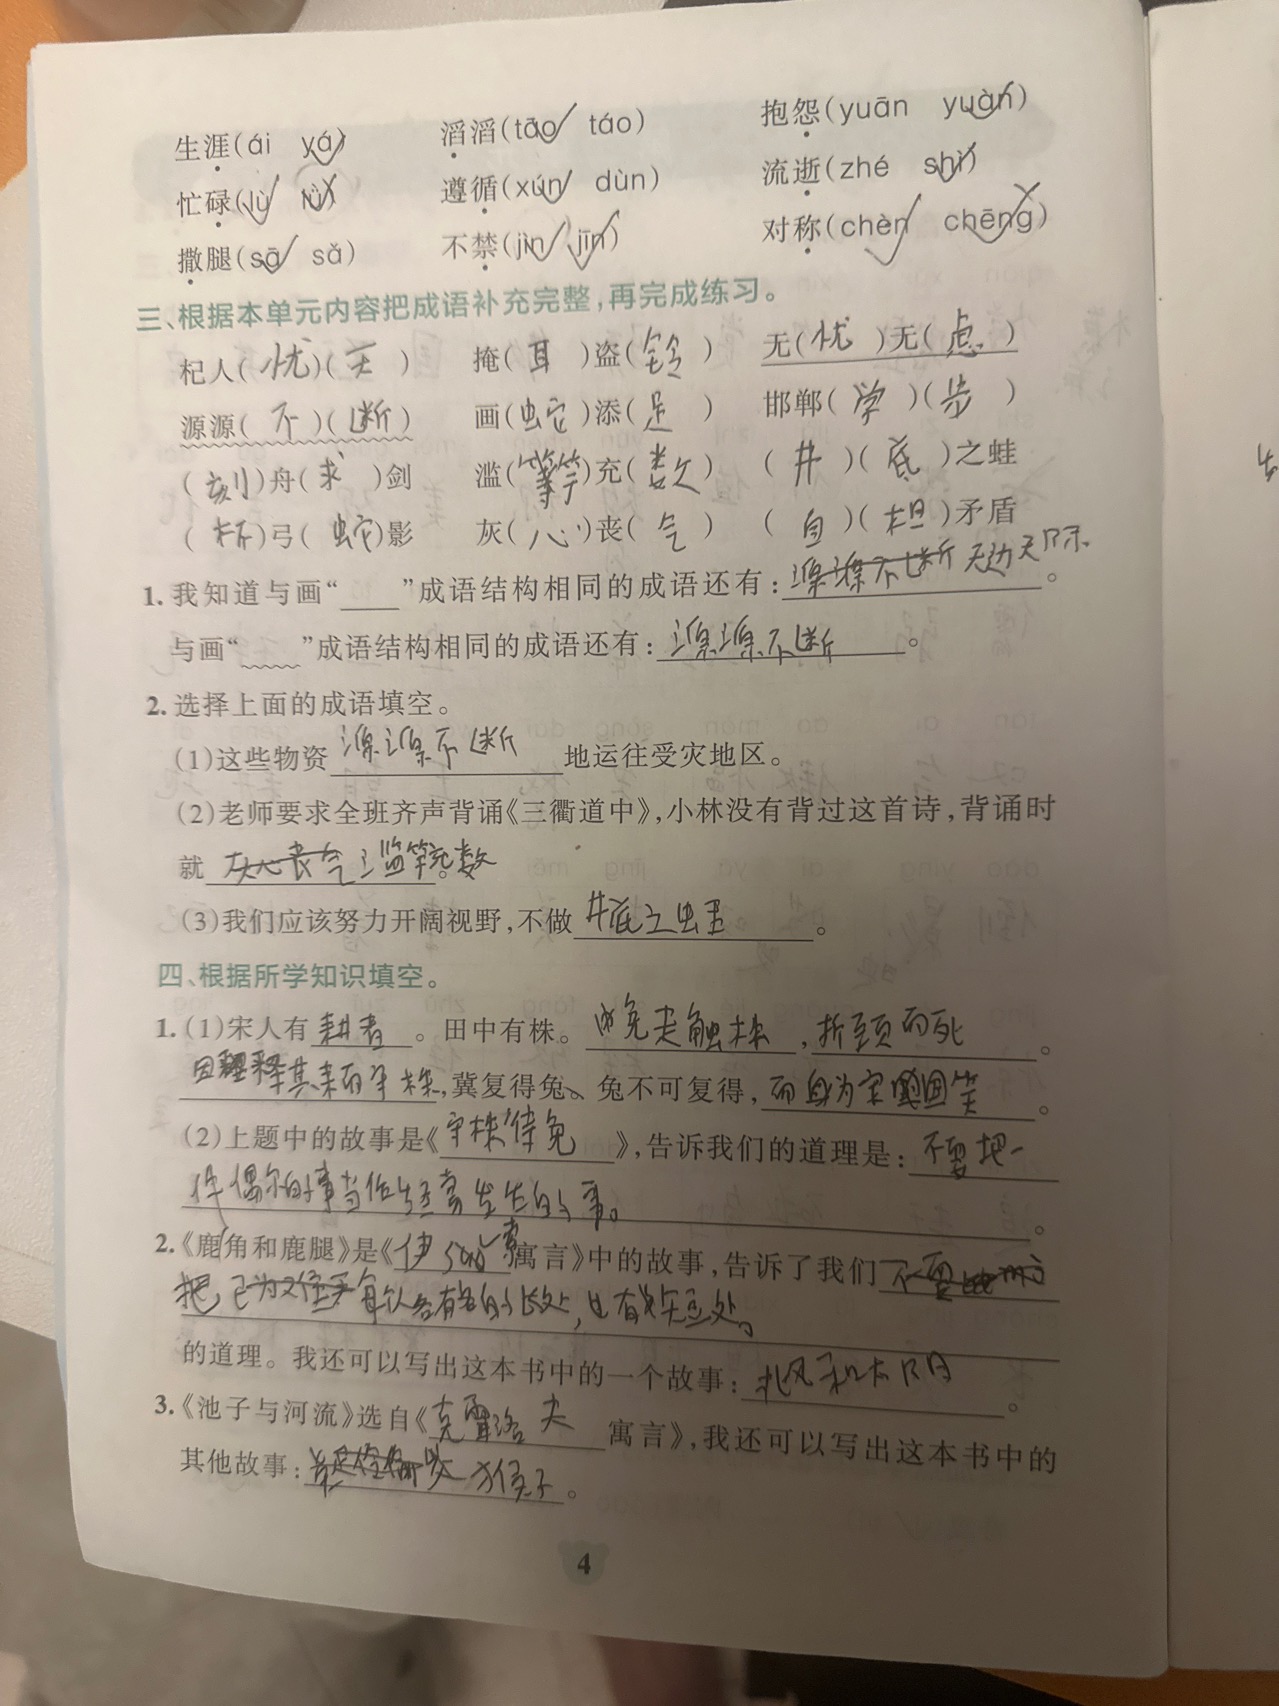 生涯(ái yá) 滔滔(tāo táo) 抱怨(yuān yuàn)
忙碌(lù lǜ) 遵循(xún dùn) 流逝(zhé shì)
撒腿(sā sǎ) 不禁(jìn jīn) 对称(chèn chēng)
三、根据本单元内容把成语补充完整,再完成练习。
杞人(忧)(天) 掩(耳)盗(铃) 无(忧)无(点)
源源(不)(断) 画(蛇)添(足) 邯郸(学)(步)
(刻)舟(求)剑 滥(竽)充(数) (井)(底)之蛙
(杯)弓(蛇)影 灰(心)丧(气) (自)(相)矛盾
1.我知道与画“ ”成语结构相同的成语还有:源源不断 无边无际。
与画“ ”成语结构相同的成语还有:源源不断。
2.选择上面的成语填空。
(1)这些物资源源不断地运往受灾地区。
(2)老师要求全班齐声背诵《三衢道中》,小林没有背过这首诗,背诵时
就灰心丧气滥竽充数。
(3)我们应该努力开阔视野,不做井底之蛙。
四、根据所学知识填空。
1.(1)宋人有耕者。田中有株。兔走触株,折颈而死。
因释其耒而守株,冀复得兔。兔不可复得,而身为宋国笑。
(2)上题中的故事是《守株待兔》,告诉我们的道理是:不要把一
件偶尔的事当作经常发生的事。
2.《鹿角和鹿腿》是《伊索寓言》中的故事,告诉了我们不要
把己为又 每个人各有各的长处,也有短处。
的道理。我还可以写出这本书中的一个故事:北风和太阳。
3.《池子与河流》选自《克雷洛夫寓言》,我还可以写出这本书中的
其他故事:猴子。
4